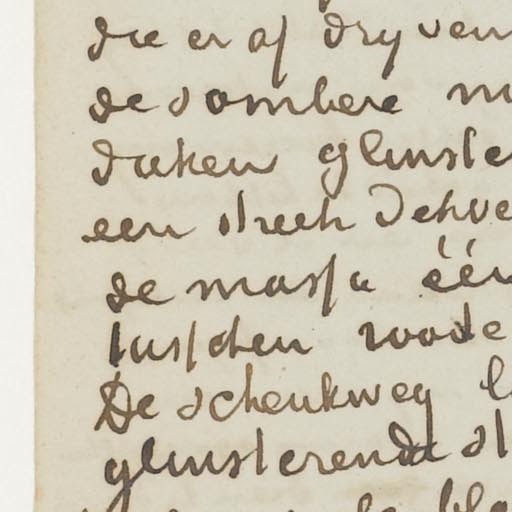 die er af dryven
de sombere
daken glinste
een streek
de massa één
tusschen roode
De schenkweg
glinsterende st